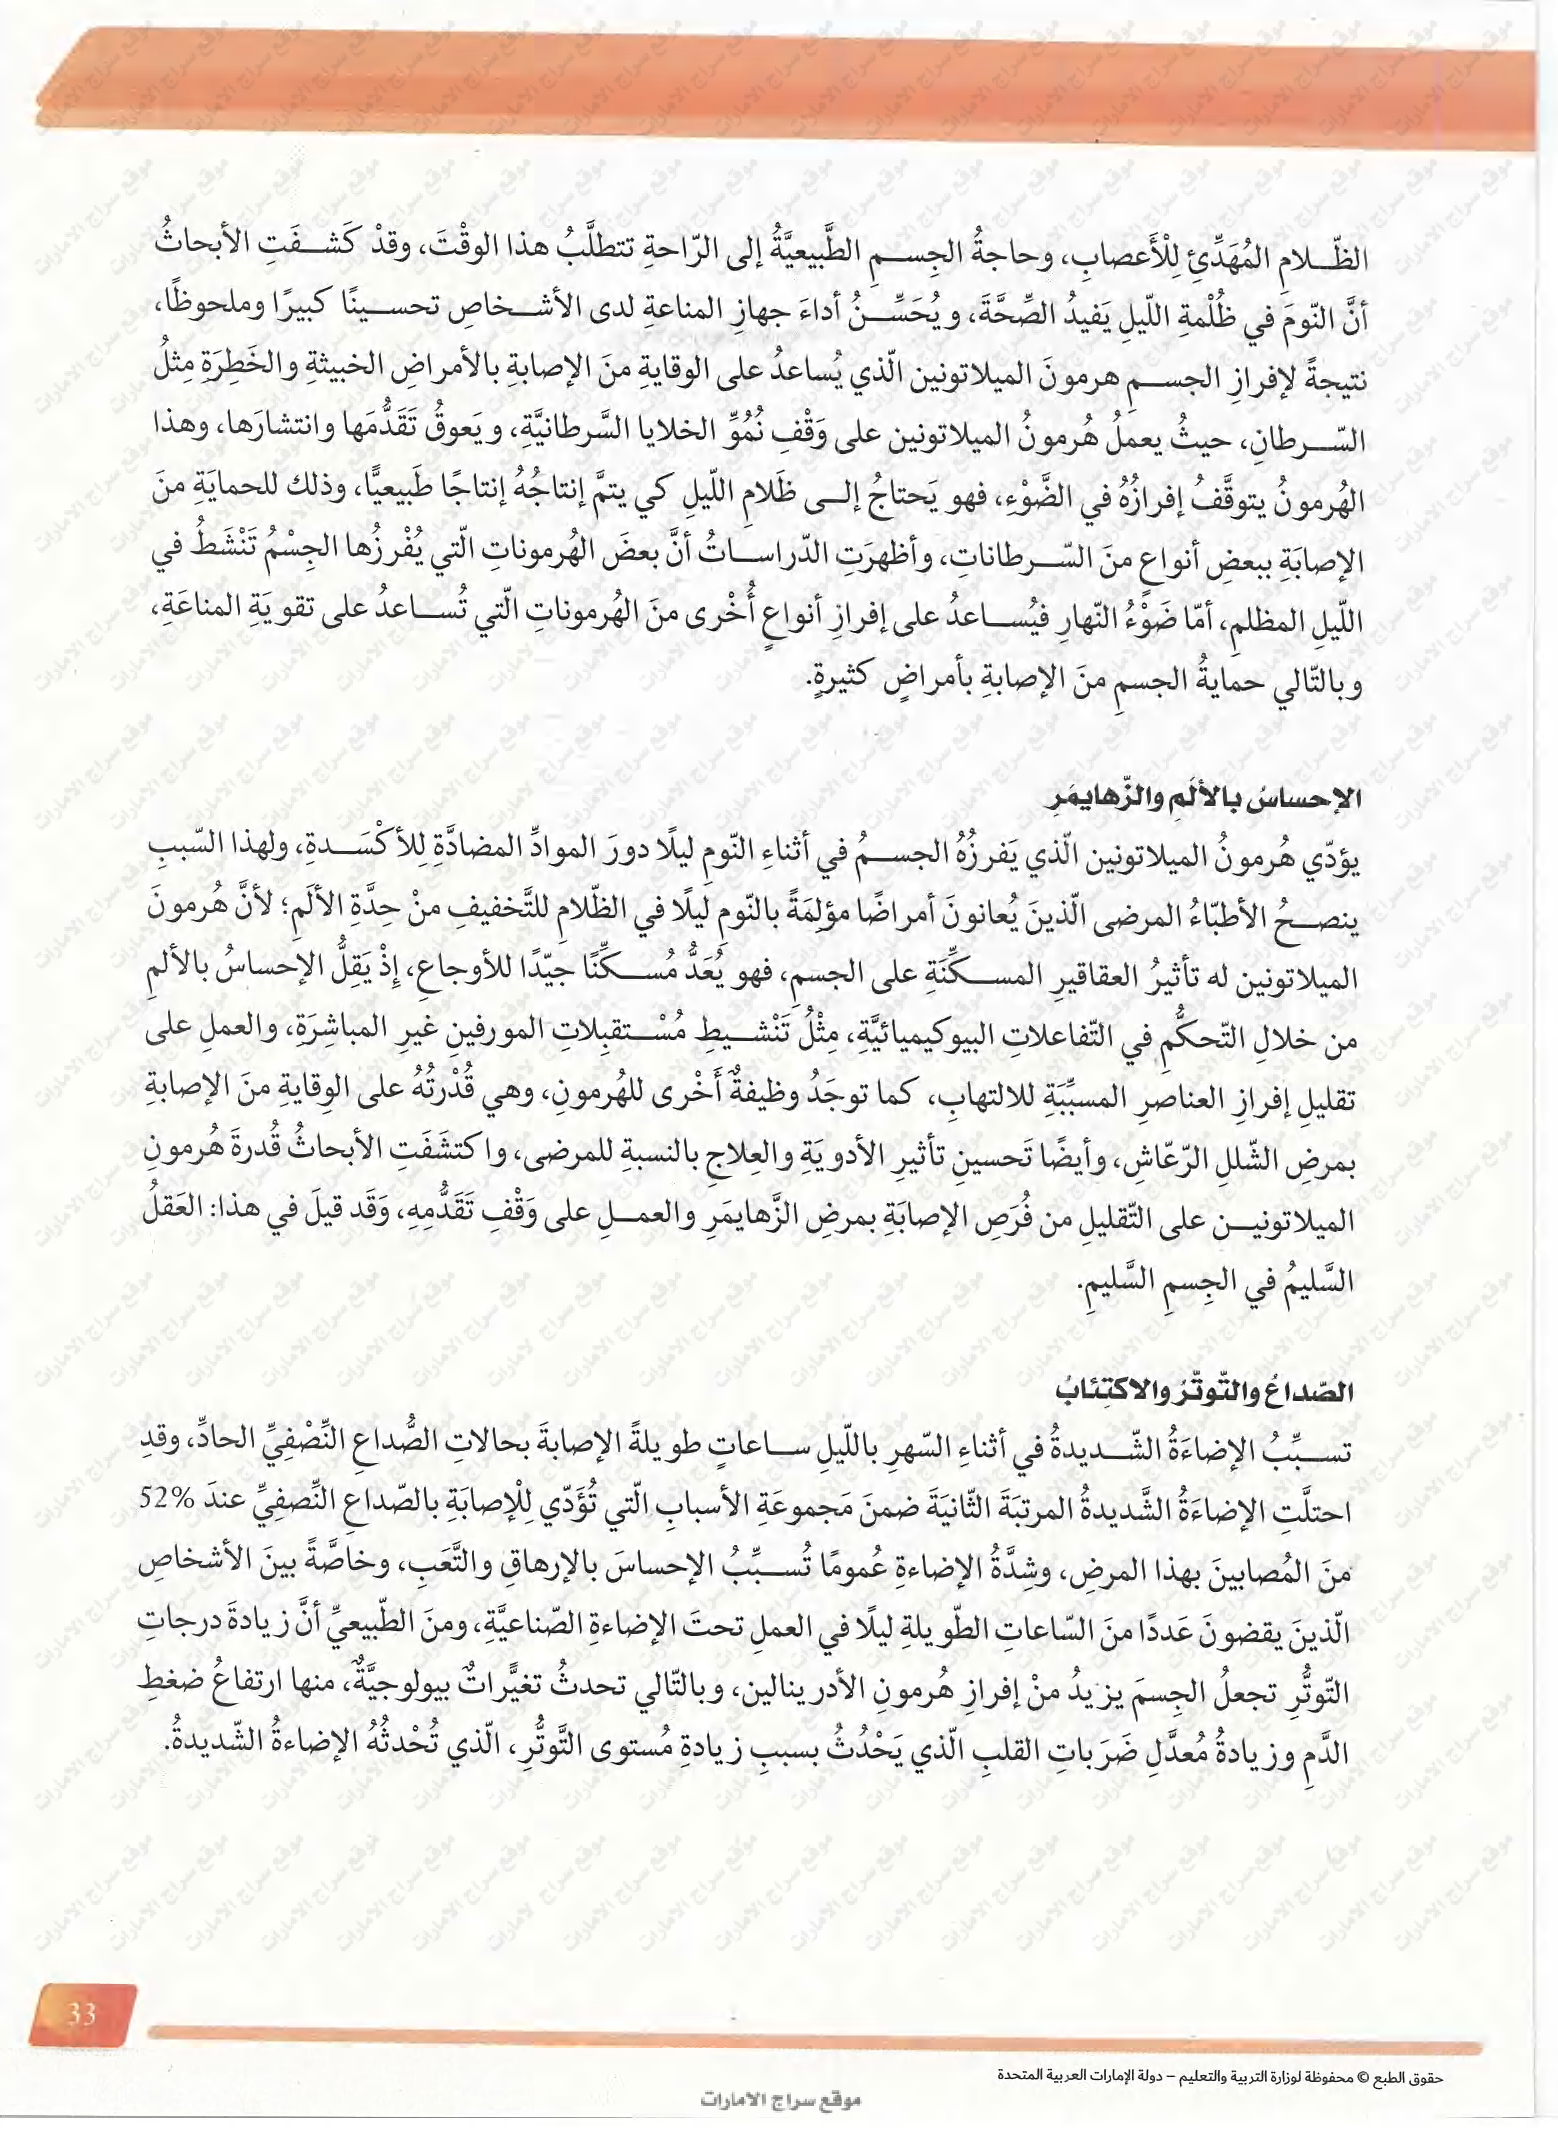 الظّلامِ المُهَدِّئِ لِلْأَعصابِ، وحاجةُ الجِسمِ الطَّبيعيَّةُ إلى الرّاحةِ تتطلَّبُ هذا الوقْتَ، وقدْ كَشفَتِ الأبحاثُ
أنَّ النّومَ في ظُلْمةِ اللّيلِ يَفيدُ الصِّحَّةَ، ويُحَسِّنُ أداءَ جهازِ المناعةِ لدى الأشخاصِ تحسينًا كبيرًا وملحوظًا،
نتيجةً لإفرازِ الجسمِ هرمونَ الميلاتونين الّذي يُساعدُ على الوقايةِ منَ الإصابةِ بالأمراضِ الخبيثةِ والخَطِرَةِ مِثلُ
السّرطانِ، حيثُ يعملُ هُرمونُ الميلاتونين على وَقْفِ نُمُوِّ الخلايا السَّرطانيَّةِ، ويَعوقُ تَقَدُّمَها وانتشارَها، وهذا
الهُرمونُ يتوقَّفُ إفرازُهُ في الضَّوْءِ، فهو يَحتاجُ إلى ظَلامِ اللّيلِ كي يتمَّ إنتاجُهُ إنتاجًا طَبيعيًّا، وذلك للحمايَةِ منَ
الإصابَةِ ببعضِ أنواعٍ منَ السّرطاناتِ، وأظهرَتِ الدّراساتُ أنَّ بعضَ الهُرموناتِ الّتي يُفْرزُها الجِسْمُ تَنْشَطُ في
اللّيلِ المظلمِ، أمّا ضَوْءُ النّهارِ فيُساعدُ على إفرازِ أنواعٍ أُخْرى منَ الهُرموناتِ الّتي تُساعدُ على تقويَةِ المناعَةِ،
وبالتّالي حمايةُ الجسمِ منَ الإصابةِ بأمراضٍ كثيرةٍ.
الإحساسُ بالألَمِ والزّهايمَرِ
يؤدّي هُرمونُ الميلاتونين الّذي يَفرزُهُ الجسمُ في أثناءِ النّومِ ليلًا دورَ الموادِّ المضادَّةِ لِلأكْسَدةِ، ولهذا السّببِ
ينصحُ الأطبّاءُ المرضى الّذينَ يُعانونَ أمراضًا مؤلِمَةً بالنّومِ ليلًا في الظّلامِ للتَّخفيفِ منْ حِدَّةِ الألَمِ؛ لأنَّ هُرمونَ
الميلاتونين له تأثيرُ العقاقيرِ المسكِّنَةِ على الجسمِ، فهو يُعَدُّ مُسكِّنًا جيّدًا للأوجاعِ، إِذْ يَقِلُّ الإحساسُ بالألمِ
من خلالِ التّحكُّمِ في التّفاعلاتِ البيوكيميائيَّةِ، مِثْلُ تَنْشيطِ مُسْتقبِلاتِ المورفينِ غيرِ المباشِرَةِ، والعملِ على
تقليلِ إفرازِ العناصرِ المسبِّبَةِ للالتهابِ، كما توجَدُ وظيفةٌ أَخْرى للهُرمونِ، وهي قُدْرتُهُ على الوِقايةِ منَ الإصابةِ
بمرضِ الشّللِ الرّعّاشِ، وأيضًا تَحسينِ تأثيرِ الأدويَةِ والعِلاجِ بالنسبةِ للمرضى، واكتشَفَتِ الأبحاثُ قُدرةَ هُرمونِ
الميلاتونين على التّقليلِ من فُرَصِ الإصابَةِ بمرضِ الزَّهايمَرِ والعملِ على وَقْفِ تَقَدُّمِهِ، وَقَد قيلَ في هذا: العَقلُ
السَّليمُ في الجِسمِ السَّليمِ.
الصّداعُ والتّوتّرُ والاكتِئابُ
تسبِّبُ الإضاءَةُ الشّديدةُ في أثناءِ السّهرِ باللّيلِ ساعاتٍ طويلةً الإصابةَ بحالاتِ الصُّداعِ النِّصْفِيِّ الحادِّ، وقدِ
احتلَّتِ الإضاءَةُ الشَّديدةُ المرتبَةَ الثّانيَةَ ضمنَ مَجموعَةِ الأسبابِ الّتي تُؤَدّي لِلْإصابَةِ بالصّداعِ النِّصفِيِّ عندَ 52%
منَ المُصابينَ بهذا المرضِ، وشِدَّةُ الإضاءةِ عُمومًا تُسبِّبُ الإحساسَ بالإرهاقِ والتَّعَبِ، وخاصَّةً بينَ الأشخاصِ
الّذينَ يقضونَ عَددًا منَ السّاعاتِ الطّويلةِ ليلًا في العملِ تحتَ الإضاءةِ الصّناعيَّةِ، ومنَ الطّبيعيِّ أنَّ زيادةَ درجاتِ
التّوتُّرِ تجعلُ الجِسمَ يزيدُ منْ إفرازِ هُرمونِ الأدرينالين، وبالتّالي تحدثُ تغيَّراتٌ بيولوجيَّةٌ، منها ارتفاعُ ضغطِ
الدَّمِ وزيادةُ مُعدَّلِ ضَرَباتِ القلبِ الّذي يَحْدُثُ بسببِ زيادةِ مُستوى التَّوتُّرِ، الّذي تُحْدثُهُ الإضاءةُ الشّديدةُ.
33
حقوق الطبع © محفوظة لوزارة التربية والتعليم – دولة الإمارات العربية المتحدة
موقع سراج الامارات